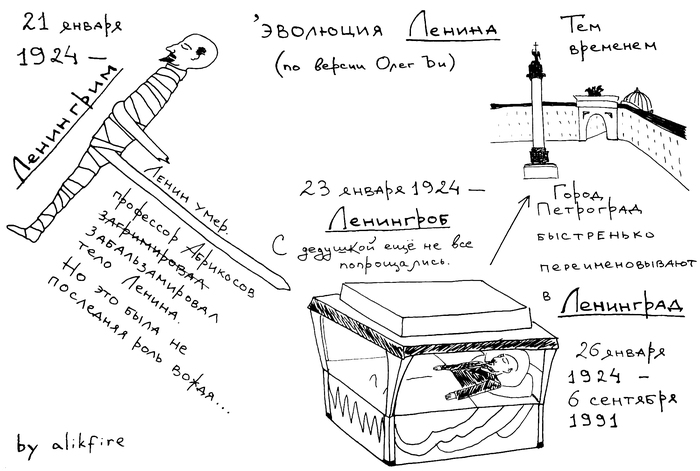 'Эволюция Ленина
(по версии Олег Ъи)
21 января
1924 —
Ленингрим
Ленин умер.
профессор Абрикосов
загримировал
забальзамировал
тело Ленина.
Но это была не
последняя роль вождя...
23 января 1924 —
Ленингроб
С дедушкой ещё не все
попрощались.
Тем
временем
Город
Петроград
быстренько
переименовывают
в Ленинград
26 января
1924 —
6 сентября
1991
by alikfire